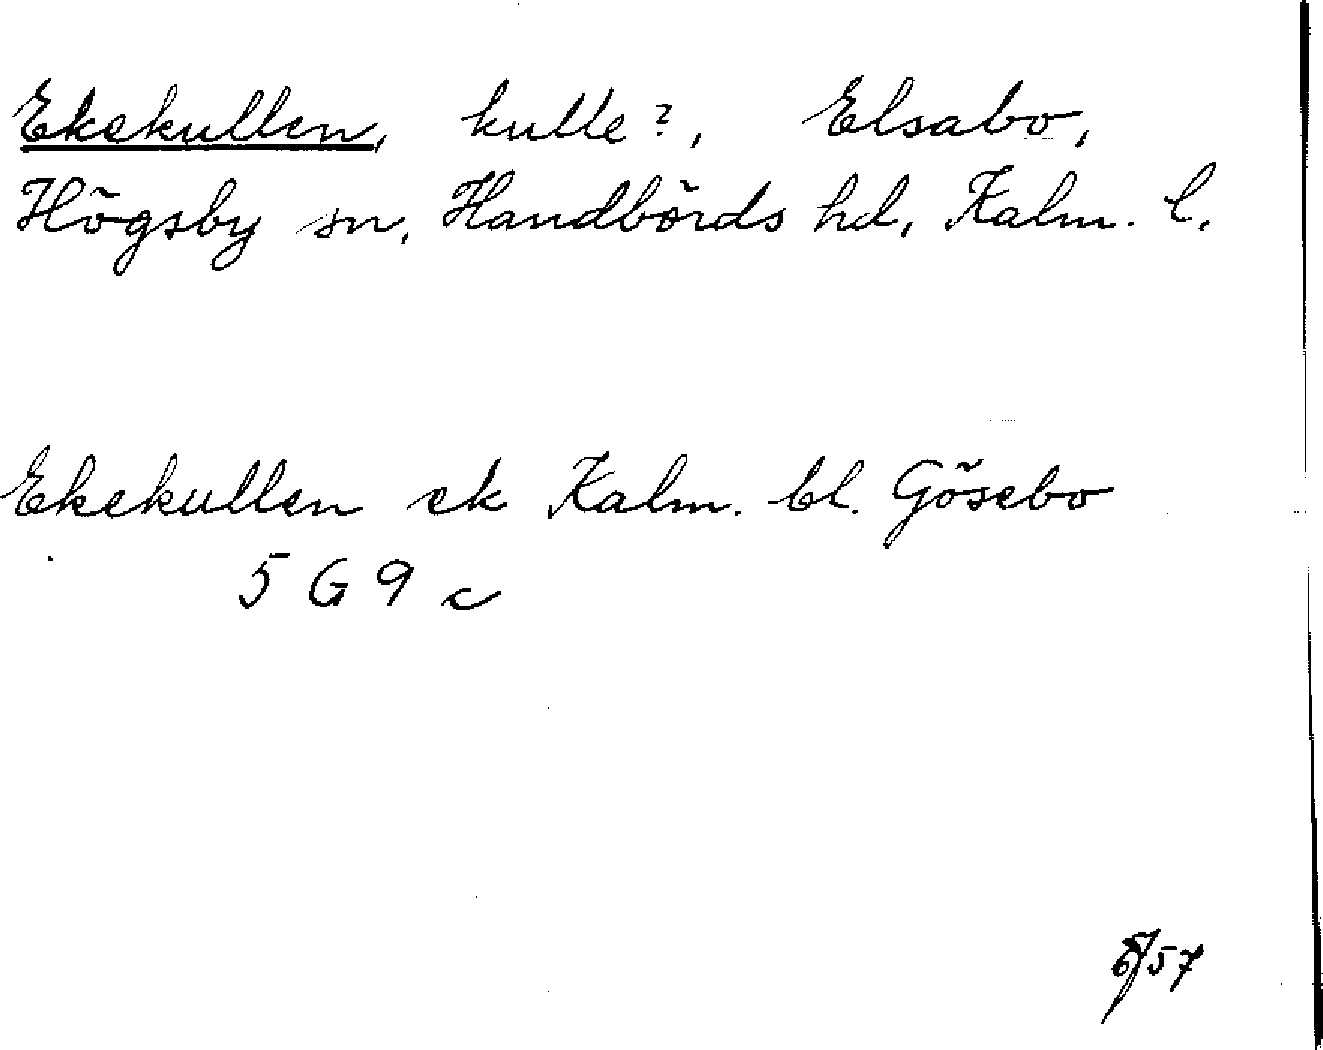 Ekekullen, kulle?, Elsabo,
Högsby sn, Handbörds hd, Kalm. l.
Ekekullen ek Kalm. bl. Gösebo
5 G 9 c